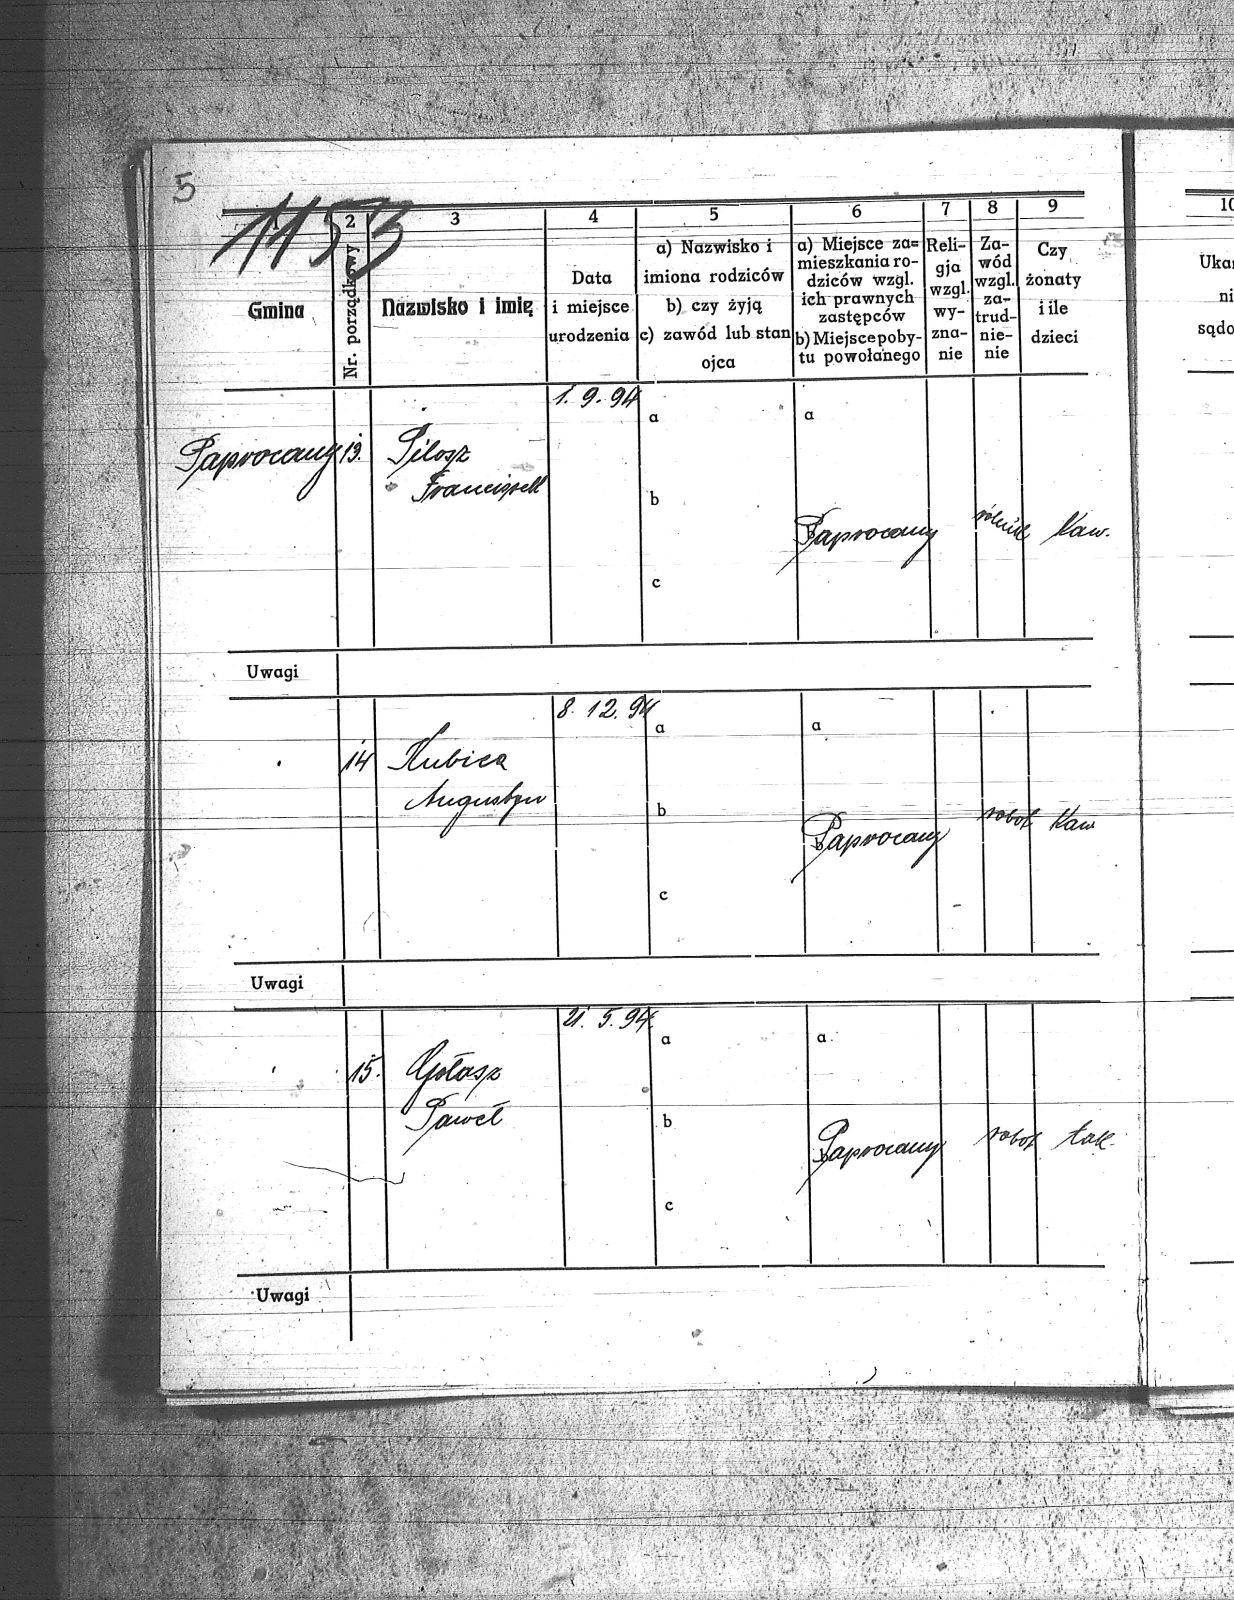 5
1153
2
3
4
5
6
7
8
9
10
Gmina
Nr. porządkowy
Nazwisko i imię
Data
i miejsce
urodzenia
a) Nazwisko i
imiona rodziców
b) czy żyją
c) zawód lub stan
ojca
a) Miejsce za=
mieszkania ro-
dziców wzgl.
ich prawnych
zastępców
b) Miejsce poby-
tu powołanego
Reli-
gja
wzgl.
wy-
zna-
nie
Za-
wód
wzgl.
za-
trud-
nie-
nie
Czy
żonaty
i ile
dzieci
Uka
ni
sądo
1. 9. 94
a
a
Paprocany
13.
Pilosz
Franciszek
b
b
Paprocany
rolnik
Kaw.
c
Uwagi
8. 12. 94
a
a
14
Kubica
Augustyn
b
b
Paprocany
robot
Kaw
c
Uwagi
21. 5. 94.
a
a
15.
Gołasz
Paweł
b
b
Paprocany
robot
tak.
c
Uwagi